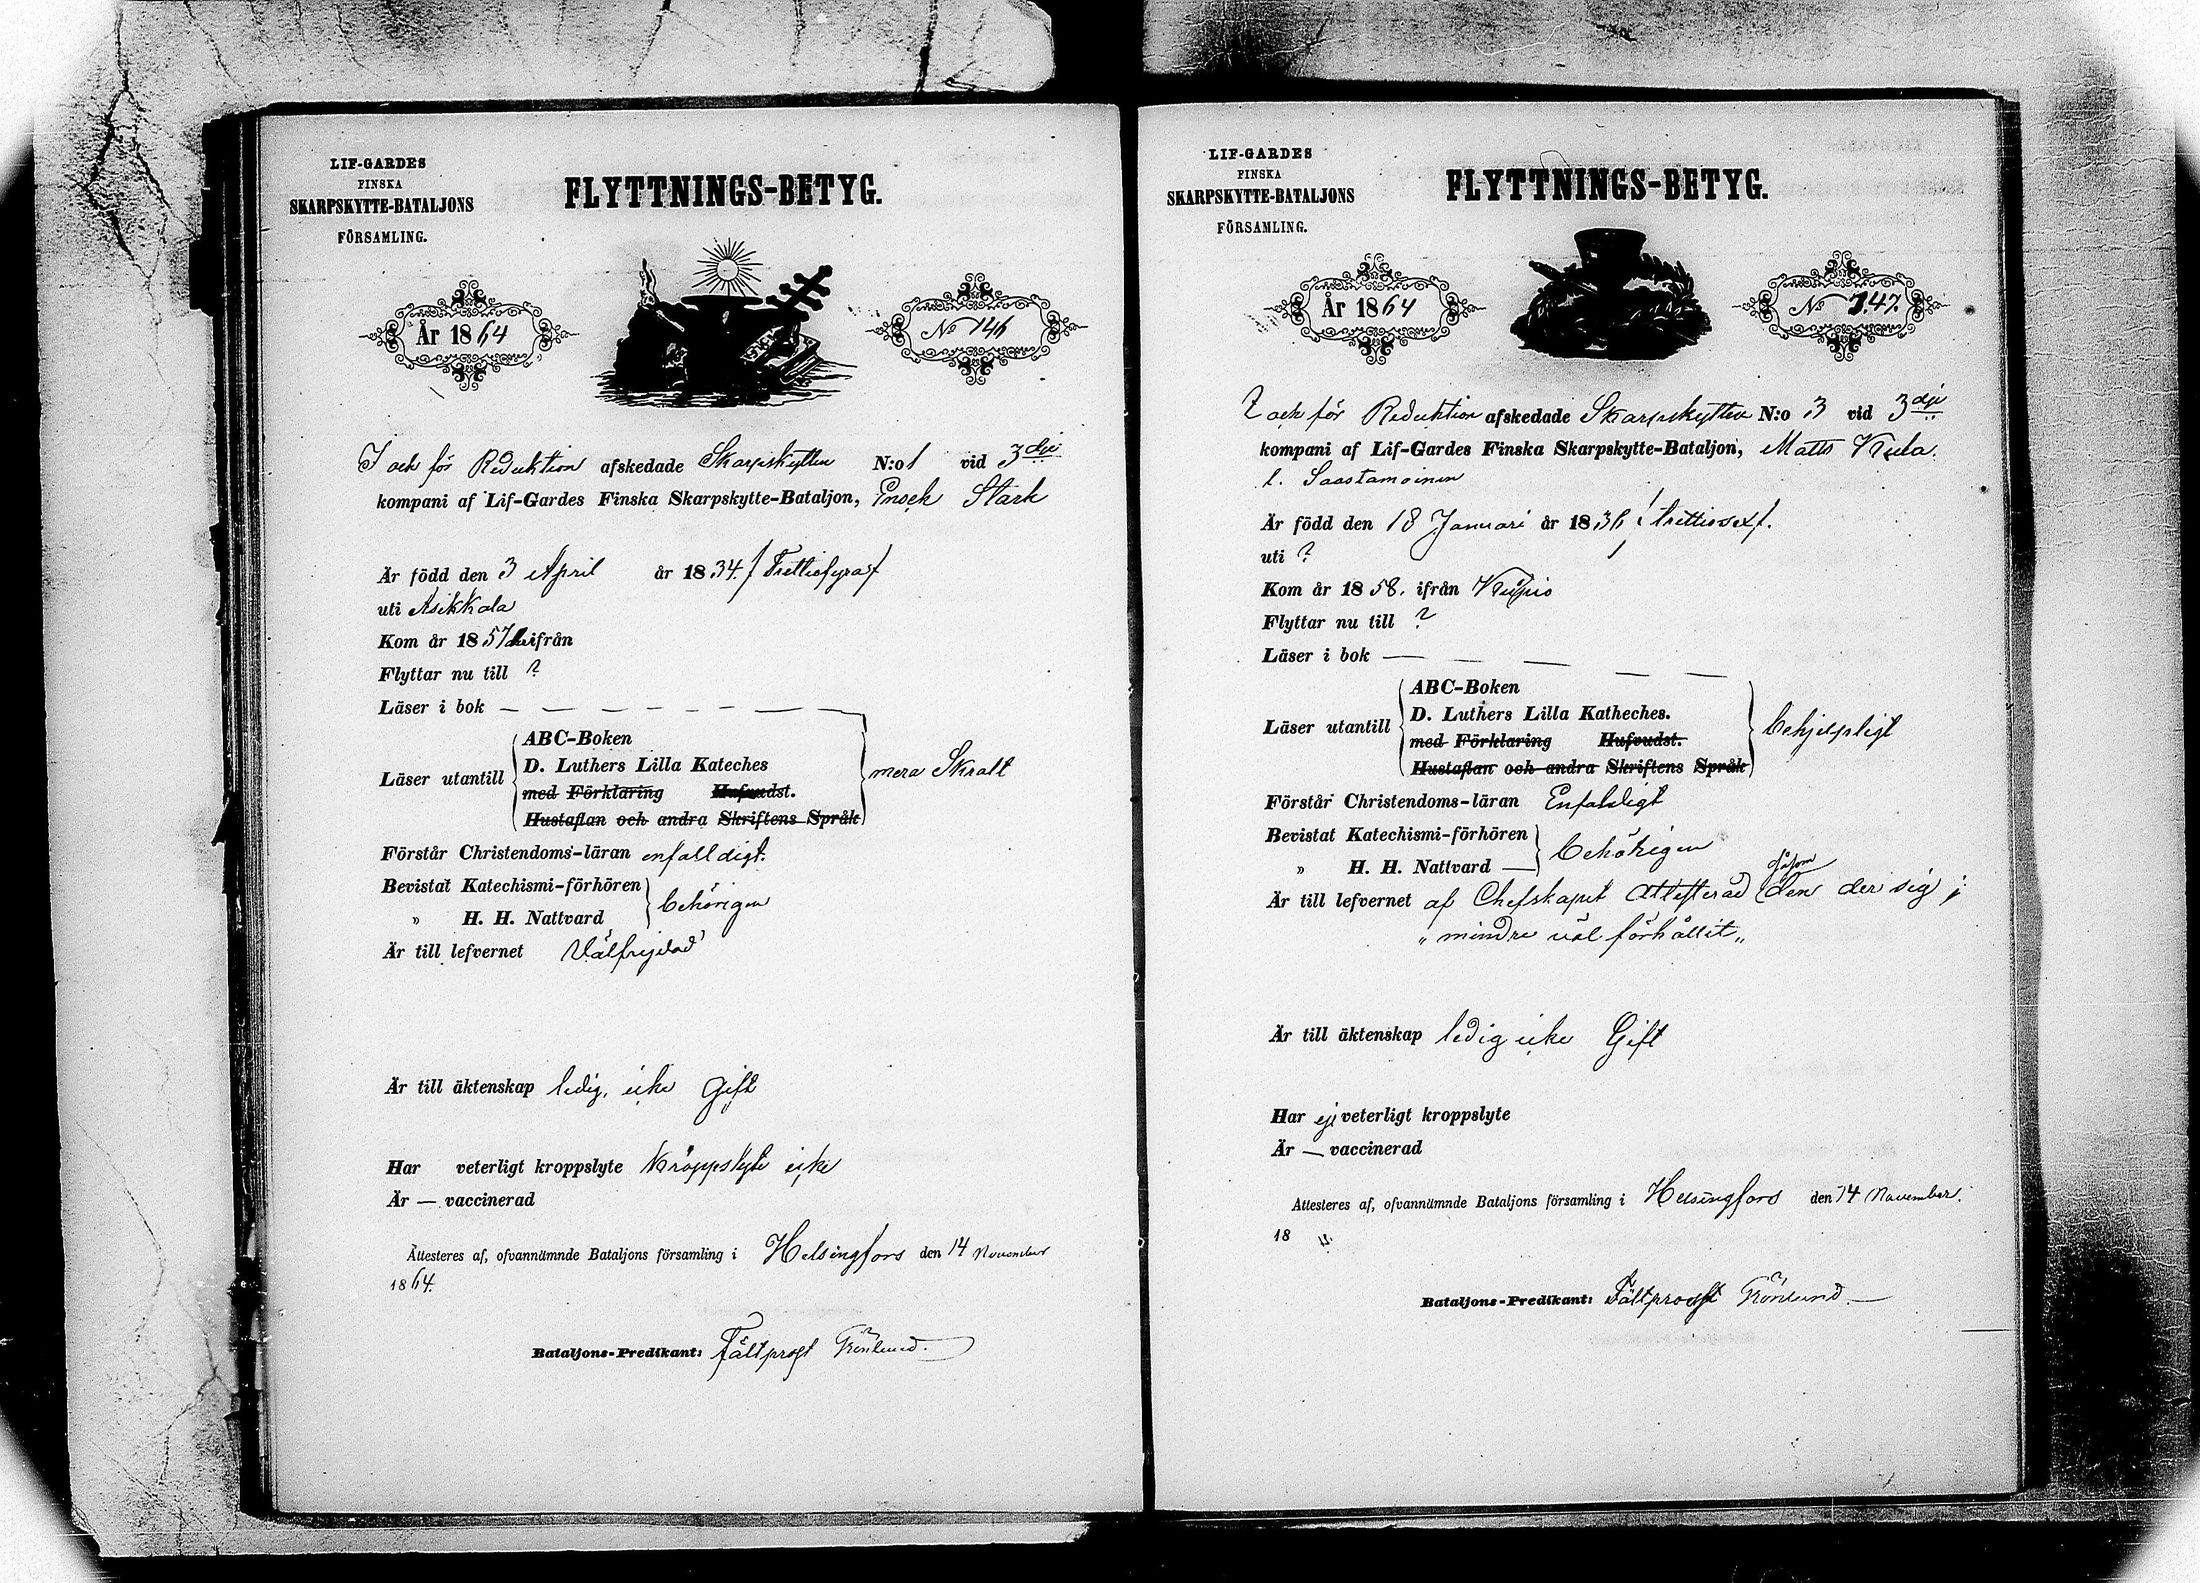 LIF-GARDES
FINSKA
SKARPSKYTTE-BATALJONS
FÖRSAMLING.
FLYTTNINGS-BETYG.
År 1864
No 146
I och för Reduktion afskedade Skarpskytten N:o 1 vid 3dje
kompani af Lif-Gardes Finska Skarpskytte-Bataljon, Enoch Stark
Är född den 3 April år 1834. / Trettiofyra /
uti Asikkala
Kom år 1857 ifrån
Flyttar nu till ?
Läser i bok — — — — — — —
Läser utantill
ABC-Boken
D. Luthers Lilla Kateches
med Förklaring Hufvudst.
Hustaflan och andra Skriftens Språk
mera Skralt
Förstår Christendoms-läran enfalldigt.
Bevistat Katechismi-förhören
" H. H. Nattvard
behörigen
Är till lefvernet Välfrejdad
Är till äktenskap ledig, icke Gift
Har veterligt kroppslyte Kroppslyte icke
Är — vaccinerad
Attesteras af, ofvannämnde Bataljons församling i Helsingfors den 14 November
1864.
Bataljons-Predikant: Fältprost Grönlund.
LIF-GARDES
FINSKA
SKARPSKYTTE-BATALJONS
FÖRSAMLING.
FLYTTNINGS-BETYG.
År 1864
No 147.
I och för Reduktion afskedade Skarpskytten N:o 3 vid 3dje
kompani af Lif-Gardes Finska Skarpskytte-Bataljon, Matts Kula.
l. Saastamoinen
Är född den 18 Januari år 1836 / trettiosex /.
uti ?
Kom år 1858. ifrån Kuopio
Flyttar nu till ?
Läser i bok — — — — —
Läser utantill
ABC-Boken
D. Luthers Lilla Katheches.
med Förklaring Hufvudst.
Hustaflan och andra Skriftens Språk
behjelpligt
Förstår Christendoms-läran Enfaldigt
Bevistat Katechismi-förhören
" H. H. Nattvard —
behörigen
Är till lefvernet af Chefskapet Attesterad såsom den der sig
" mindre väl förhållit "
Är till äktenskap ledig icke Gift
Har ej veterligt kroppslyte
Är — vaccinerad
Attesteres af, ofvannämnde Bataljons församling i Helsingfors den 14 November.
18 "
Bataljons-Predikant: Fältprost Grönlund.